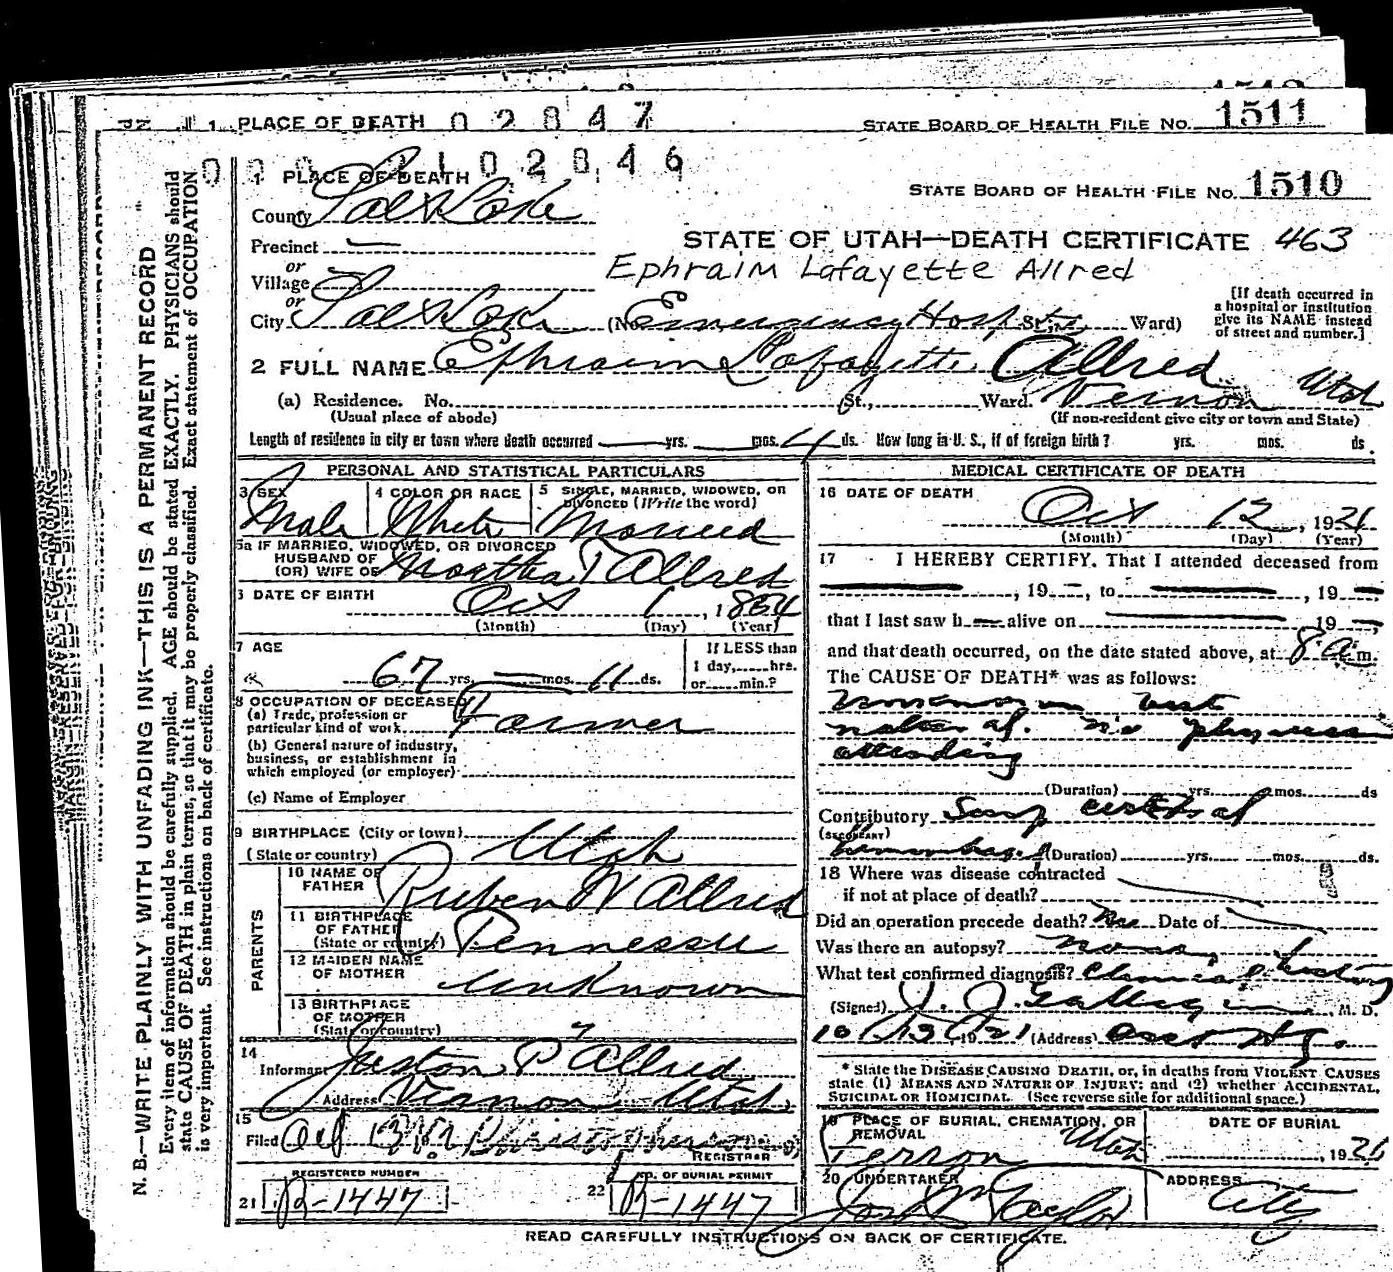 1512
1. PLACE OF DEATH 02847 STATE BOARD OF HEALTH FILE NO. 1511
02846
1 PLACE OF DEATH
STATE BOARD OF HEALTH FILE NO. 1510
County Salt Lake
Precinct —
STATE OF UTAH—DEATH CERTIFICATE 463
or
Village
Ephraim Lafayette Allred
or
City Salt Lake (No. Emergency Hosp St., Ward)
[If death occurred in
a hospital or institution
give its NAME instead
of street and number.]
2 FULL NAME Ephraim Lafayette Allred
(a) Residence. No. St., Ward. Vernon Utah
(Usual place of abode) (If non-resident give city or town and State)
Length of residence in city or town where death occurred — yrs. — mos. 4 ds. How long in U. S., if of foreign birth? yrs. mos. ds.
PERSONAL AND STATISTICAL PARTICULARS
3 SEX Male
4 COLOR OR RACE White
5 SINGLE, MARRIED, WIDOWED, OR
DIVORCED (Write the word)
Married
5a IF MARRIED, WIDOWED, OR DIVORCED
HUSBAND OF
(OR) WIFE OF Martha T Allred
6 DATE OF BIRTH Oct 1, 1854
(Month) (Day) (Year)
7 AGE
67 yrs. — mos. 11 ds.
If LESS than
1 day, hrs.
or min.?
8 OCCUPATION OF DECEASED
(a) Trade, profession or
particular kind of work Farmer
(b) General nature of industry,
business, or establishment in
which employed (or employer)
(c) Name of Employer
9 BIRTHPLACE (City or town)
(State or country) Utah
PARENTS
10 NAME OF
FATHER Ruben W Allred
11 BIRTHPLACE
OF FATHER
(State or country) Tennessee
12 MAIDEN NAME
OF MOTHER Unknown
13 BIRTHPLACE
OF MOTHER
(State or country) "
14
Informant Juston P Allred
Address Vernon Utah
15
Filed Oct 13
REGISTRAR
REGISTERED NUMBER
21 R-1447
NO. OF BURIAL PERMIT
22 R-1447
MEDICAL CERTIFICATE OF DEATH
16 DATE OF DEATH
Oct 12, 1921
(Month) (Day) (Year)
17 I HEREBY CERTIFY. That I attended deceased from
—, 19—, to —, 19—,
that I last saw h— alive on — 19—,
and that death occurred, on the date stated above, at 8 a.m.
The CAUSE OF DEATH* was as follows:
Unknown but
natural. No physician
attending
(Duration) yrs. mos. ds
Contributory
(SECONDARY)
hemorrhage (Duration) yrs. mos. ds.
18 Where was disease contracted
if not at place of death?
Did an operation precede death? No Date of
Was there an autopsy?
What test confirmed diagnosis?
(Signed) M. D.
10/13 1921 (Address)
* State the DISEASE CAUSING DEATH, or, in deaths from VIOLENT CAUSES
state (1) MEANS AND NATURE OF INJURY; and (2) whether ACCIDENTAL,
SUICIDAL OR HOMICIDAL. (See reverse side for additional space.)
19 PLACE OF BURIAL, CREMATION, OR
REMOVAL
Utah
DATE OF BURIAL
, 192
20 UNDERTAKER
Taylor
ADDRESS
City
READ CAREFULLY INSTRUCTIONS ON BACK OF CERTIFICATE.
N. B.—WRITE PLAINLY WITH UNFADING INK—THIS IS A PERMANENT RECORD
Every item of information should be carefully supplied. AGE should be stated EXACTLY. PHYSICIANS should
state CAUSE OF DEATH in plain terms, so that it may be properly classified. Exact statement of OCCUPATION
is very important. See instructions on back of certificate.